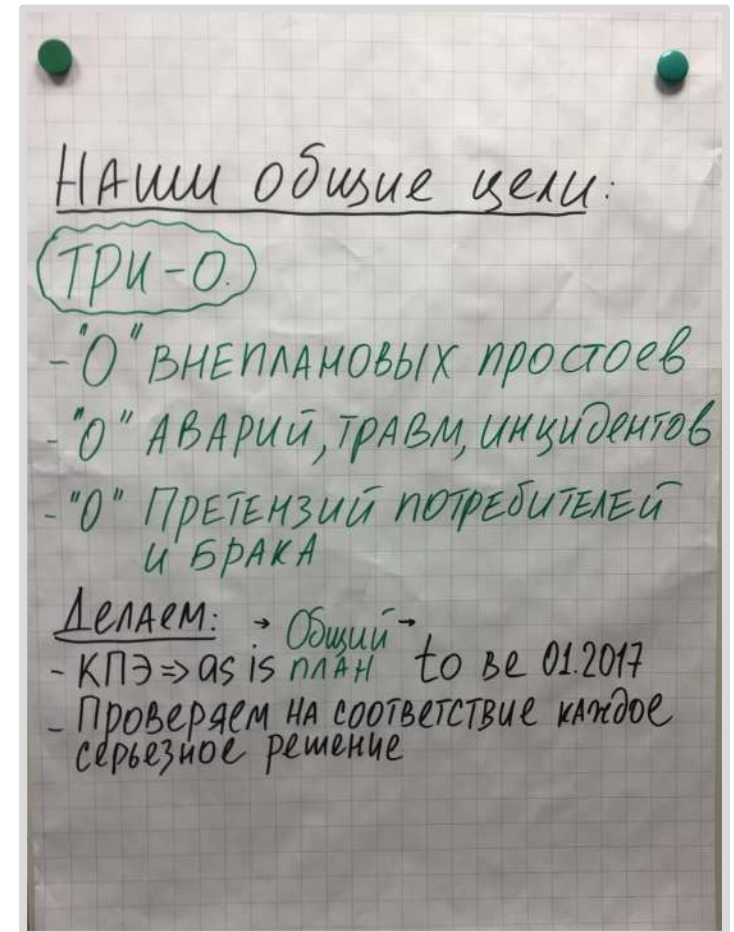 Наши общие цели:
ТРИ-0.
- "0" ВНЕПЛАНОВЫХ ПРОСТОЕВ
- "0" АВАРИЙ, ТРАВМ, ИНЦИДЕНТОВ
- "0" ПРЕТЕНЗИЙ ПОТРЕБИТЕЛЕЙ
И БРАКА
Делаем:
- КПЭ => as is → Общий план → to be 01.2017
- Проверяем на соответствие каждое
серьезное решение